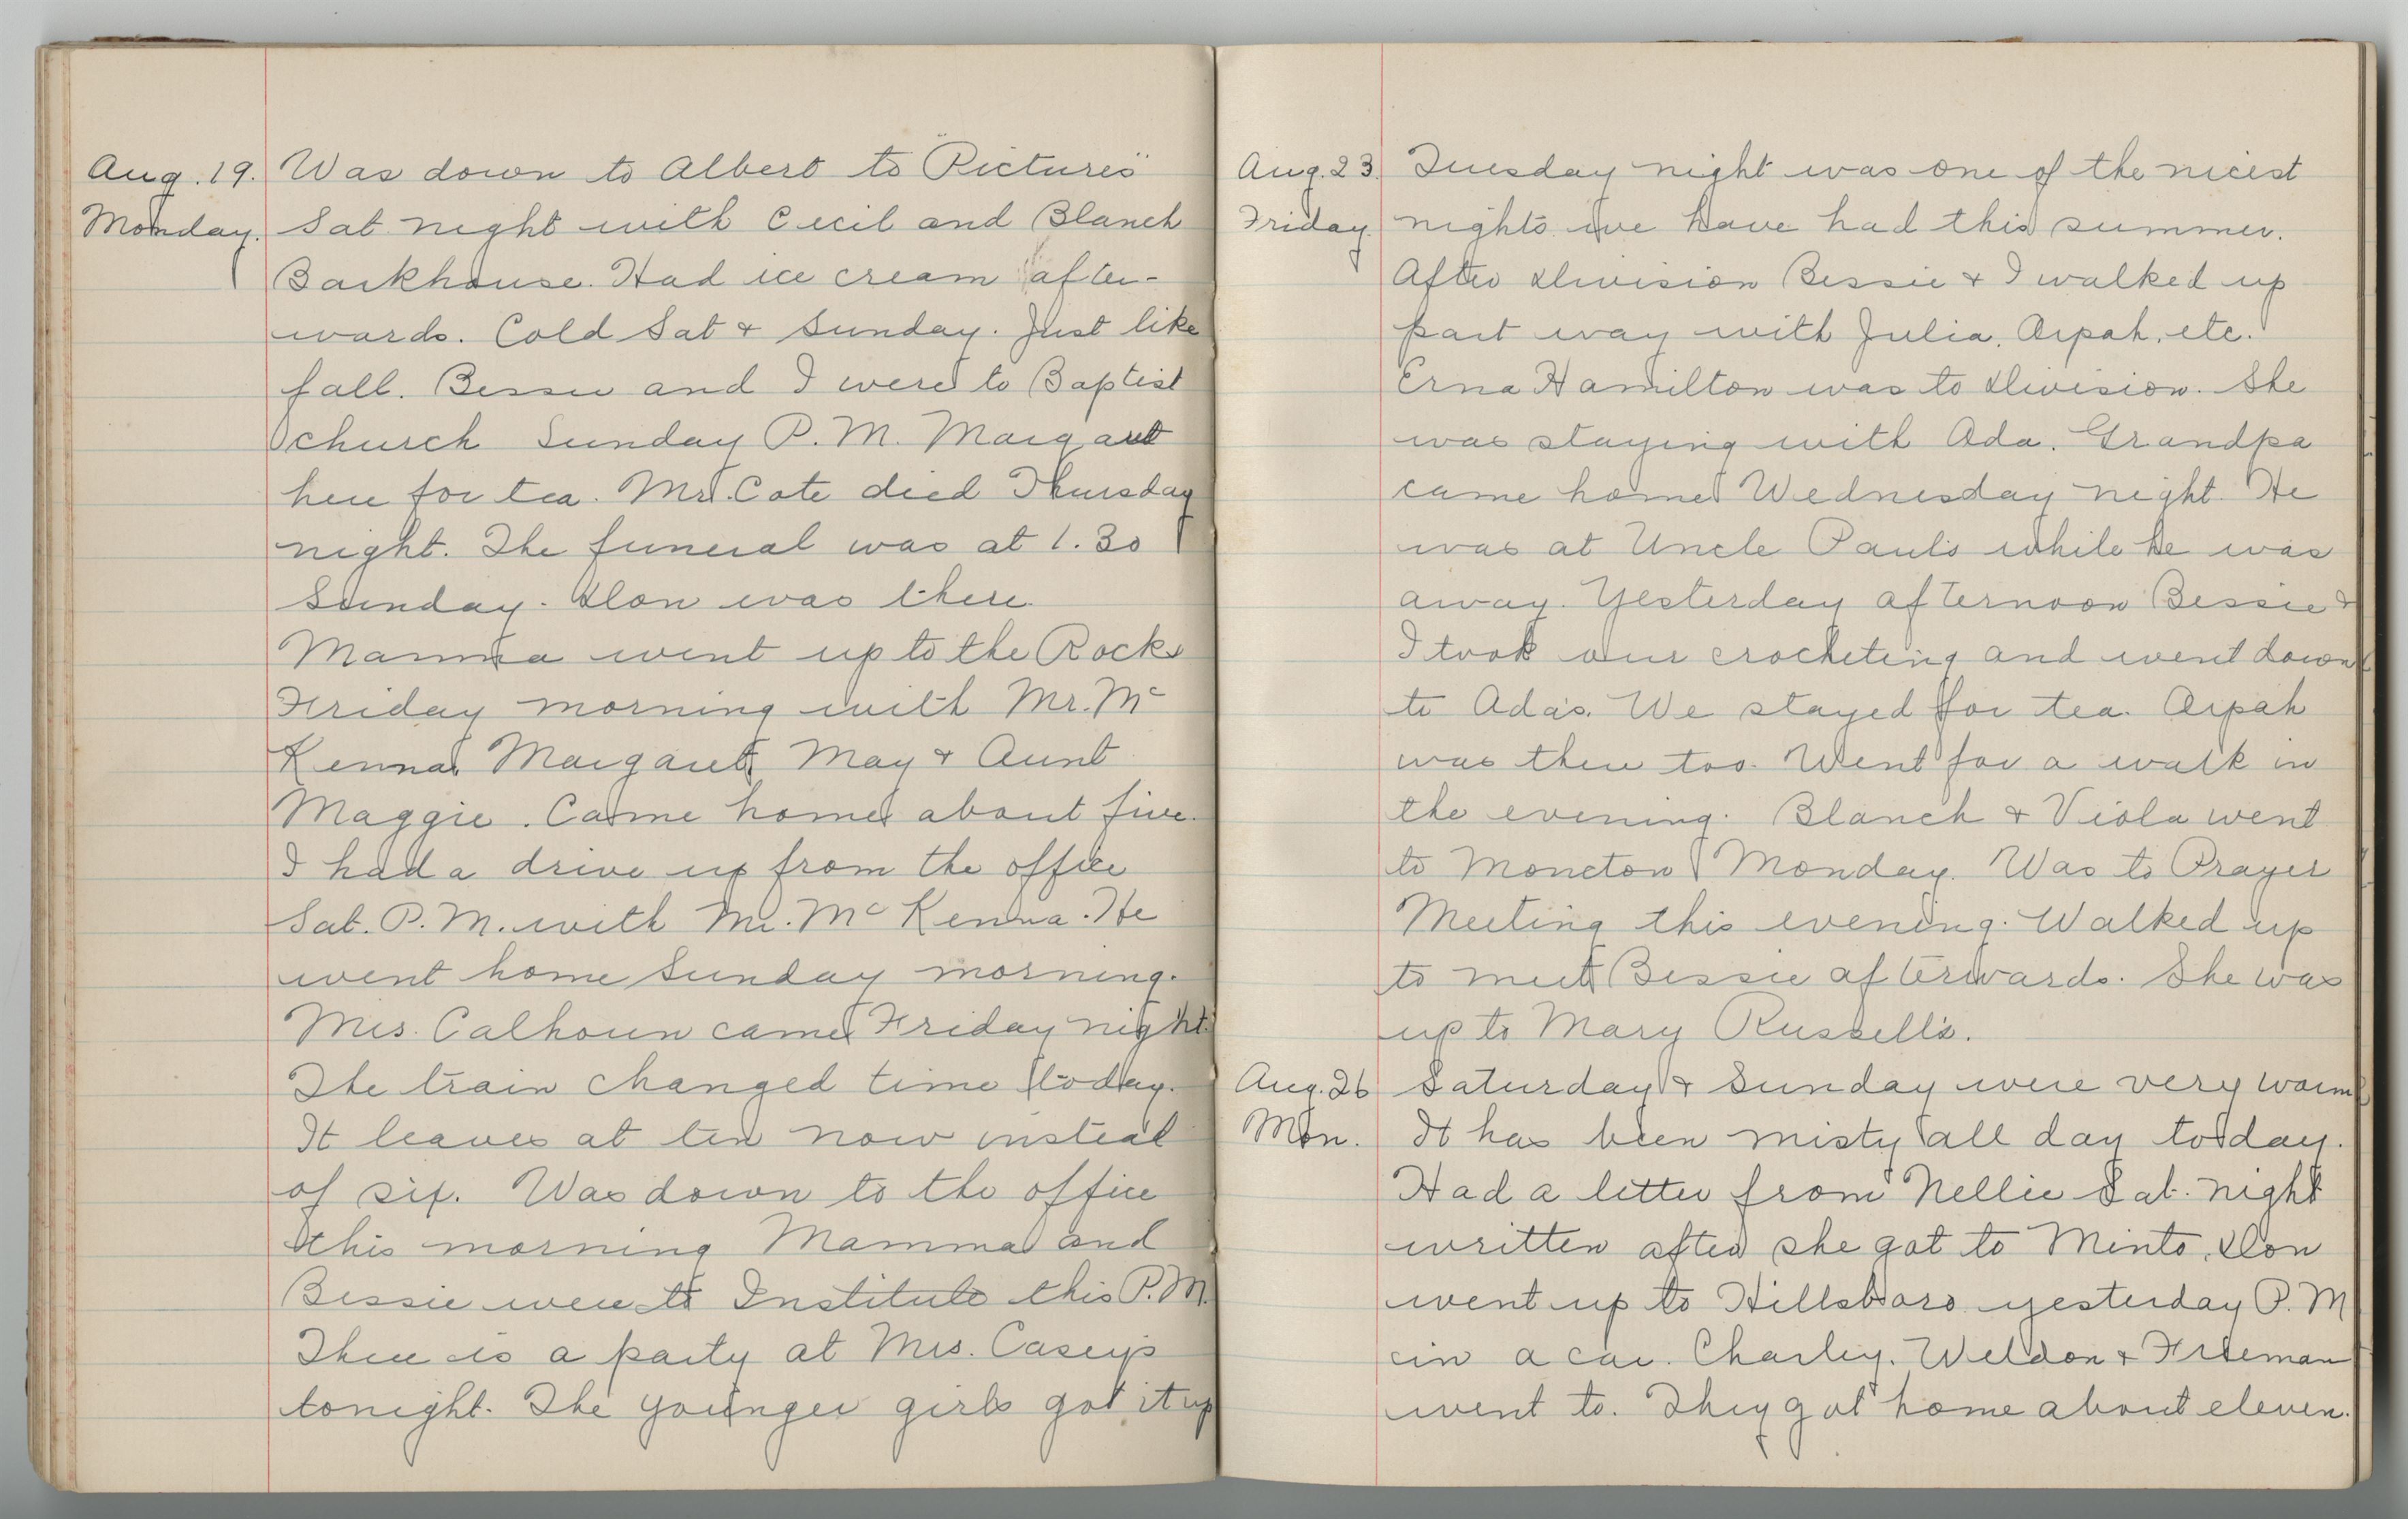 Aug. 19. Was down to Albert to "Pictures"
Monday. Sat night with Cecil and Blanch
Barkhouse. Had ice cream after-
wards. Cold Sat & Sunday. Just like
fall. Bessie and I were to Baptist
church Sunday P.M. Margaret
here for tea. Mr. Cote died Thursday
night. The funeral was at 1.30
Sunday. Don was there.
Mamma went up to the Rocks
Friday morning with Mr. Mc
Kenna, Margaret, May & Aunt
Maggie. Came home about five.
I had a drive up from the office
Sat. P.M. with Mr. McKenna. He
went home Sunday morning.
Mrs. Calhoun came Friday night.
The train changed time today.
It leaves at ten now instead
of six. Was down to the office
this morning Mamma and
Bessie were to Institute this P.M.
There is a party at Mrs. Casey's
tonight. The younger girls got it up
Aug. 23. Tuesday night was one of the nicest
Friday. nights we have had this summer.
After Division Bessie & I walked up
part way with Julia, Arpah, etc.
Erna Hamilton was to Division. She
was staying with Ada. Grandpa
came home Wednesday night. He
was at Uncle Paul's while he was
away. Yesterday afternoon Bessie &
I took our crocheting and went down
to Ada's. We stayed for tea. Arpah
was there too. Went for a walk in
the evening. Blanch & Viola went
to Moncton Monday. Was to Prayer
Meeting this evening. Walked up
to meet Bessie afterwards. She was
up to Mary Russell's.
Aug. 26 Saturday & Sunday were very warm
Mon. It has been misty all day today.
Had a letter from Nellie Sat. night
written after she got to Minto. Don
went up to Hillsboro yesterday P.M
in a car. Charley. Weldon & Freeman
went to. They got home about eleven.